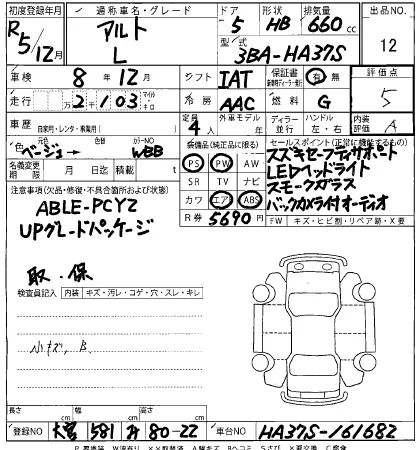 初度登録年月 通称車名・グレード ドア 形状 排気量 出品NO.
R5/12月 アルト L 5 HB 660cc 12
型式 3BA-HA37S
車検 8年12月 シフト IAT 保証書 有 無 評価点
走行 2千103 マイル・キロ 冷房 AAC 燃料 G 5
車歴 自家用・レンタ・事業用( ) 定員 4人 外車モデル年 ディーラー 並行 ハンドル 左・右 内装評価 A
色 元色 ベージュ 色替 カラーNO WBB
装備品(純正品に限る) セールスポイント(正常に機能するもの)
名義変更期限 月 日 積載 t
PS PW AW
SR TV ナビ
カワ エアB ABS
R券 5690円
スズキセーフティサポート
LEDヘッドライト
スモークガラス
バックカメラ付オーディオ
FW キズ・ヒビ割・リペア跡・X要
注意事項(欠品・修復・不具合箇所および状態)
ABLE-PCYZ
UPグレードパッケージ
取.保
検査員記入 内装 キズ・汚レ・コゲ・穴・スレ・キレ
小キズ, B
長さ cm 幅 cm 高さ cm
登録NO 大宮 581 み 80-22 車台NO HA37S-161682